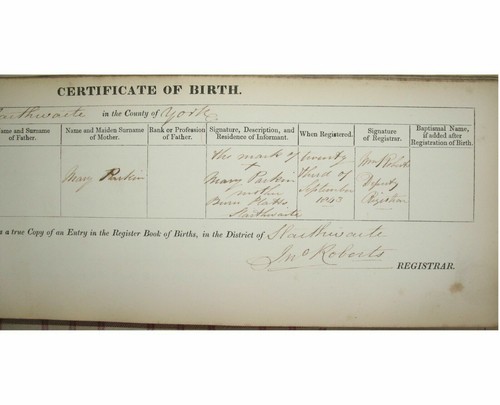 CERTIFICATE OF BIRTH.
Slaithwaite in the County of York
Name and Surname of Father.
Name and Maiden Surname of Mother.
Rank or Profession of Father.
Signature, Description, and Residence of Informant.
When Registered.
Signature of Registrar.
Baptismal Name, if added after Registration of Birth.
Mary Parkin
the mark of
+
Mary Parkin
mother
Burn Platts
Slaithwaite
twenty
third of
September
1843
Roberts
Deputy
Registrar
is a true Copy of an Entry in the Register Book of Births, in the District of Slaithwaite
Jno Roberts
REGISTRAR.